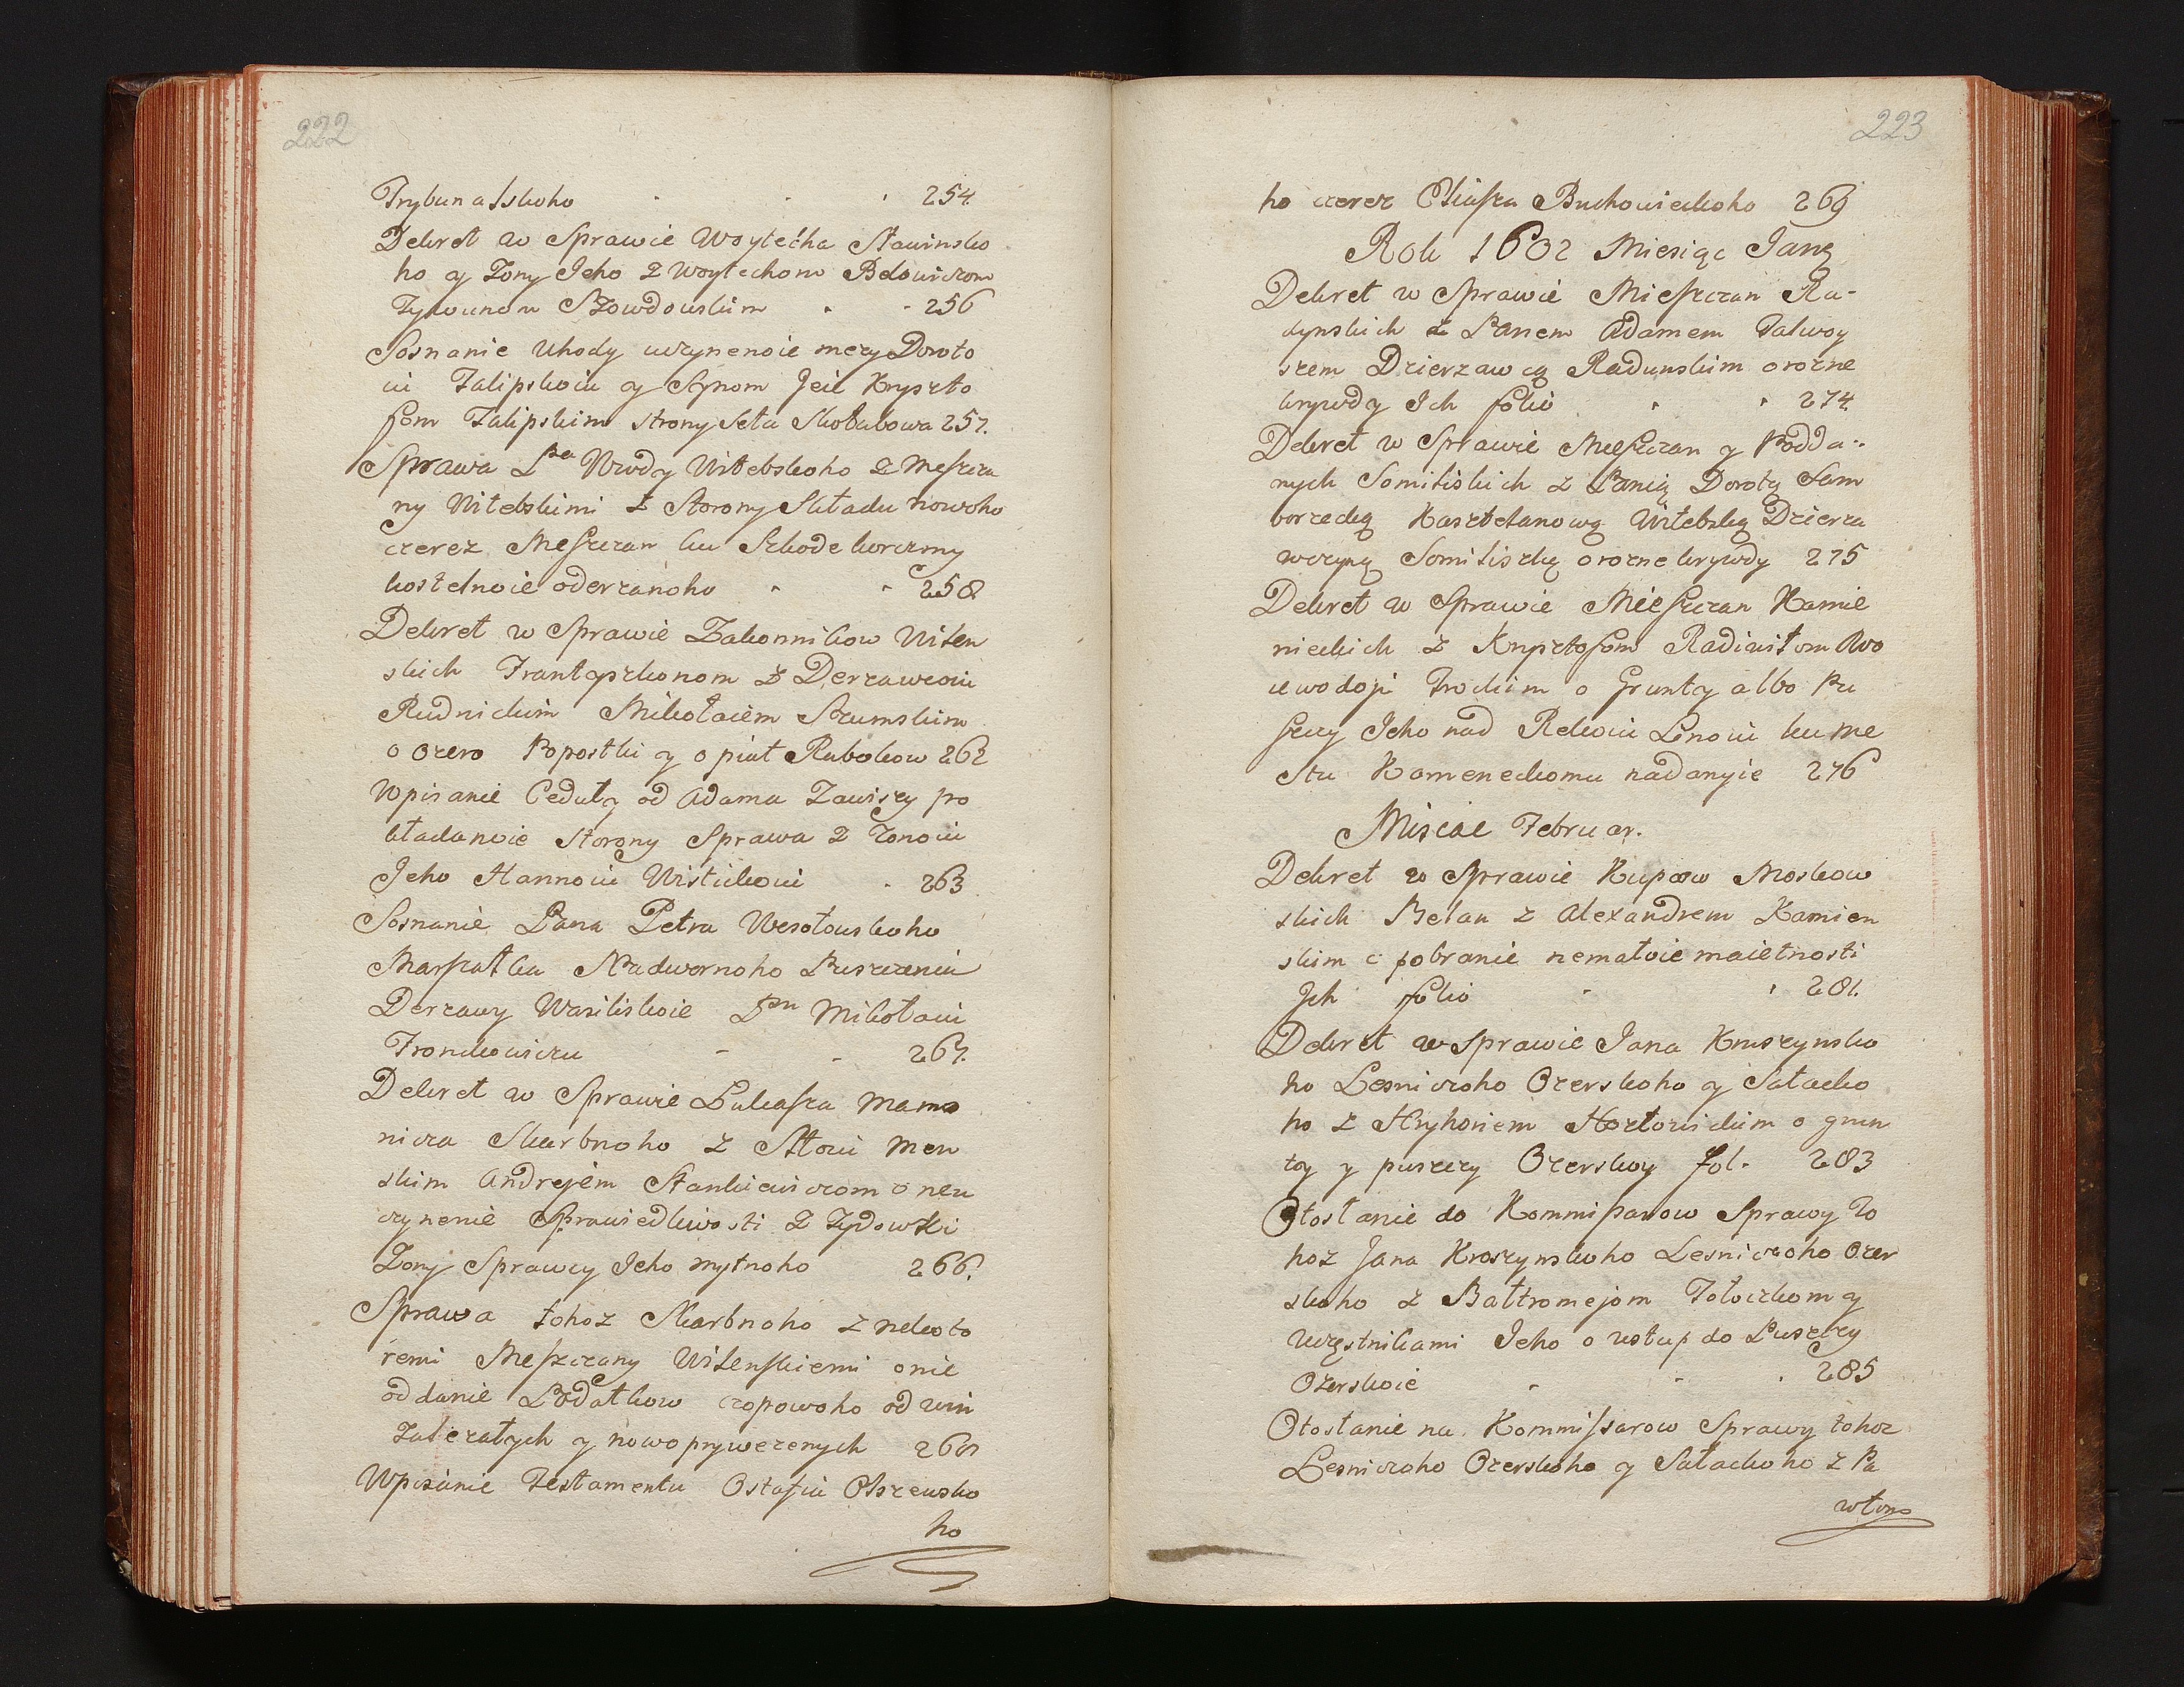 222
Trybunalskoho 254.
Dekret w Sprawie Woytecha Stawinsko
ho y Zony Jeho z Woytechom Belowiczom
Tywunom Szowdowskim 256
Sosnanie Uhody uczynenoie mezy Doroto
iu Talipskoiu y Synom Jeie Kryszto
fom Talipskim strony Seła Skołubowa 257.
Sprawa Pna Wody Witebskoho z Meszcza
ny Witebskimi z Storony Składu nowoho
czerez Meszczan ku Szkode korczmy
kostelnoie oderzanoho 258
Dekret w Sprawie Zakonnikow Wilen
skich Frantyszkonom z Derzawcoiu
Rudnickim Mikołaiem Szumskim
o Ozero Popostki y o piat Rybakow 262
Wpisanie Ceduły od Adama Zawiszy po
kładanoie Storony Sprawa z Zonoiu
Jeho Hannoiu Wistickoiu 263
Sosnanie Pana Petra Wesołowskoho
Marszałka Nadwornoho Puszczeniu
Derzawy Wasiliskoie Pnu Mikołaiu
Fronckowiczu 267.
Dekret w Sprawie Lukasza Mamo
nicza Skarbnoho z Słoiu Men
skim Andrejem Stankiewiczom o neu
czynenie Sprawiedliwosti z Zydowki
Zony Sprawcy Jeho mytnoho 266.
Sprawa tohoz Skarbnoho z nekoto
remi Meszczany Wilenskiemi o nie
oddanie Podatkow czopowoho od win
Zalezałych y nowo prywezenych 268
Wpisanie Testamentu Ostafia Olszewsko
ho
223
ho czerez Eliasza Buchowieckoho 269
Rok 1602 Miesiąc Janę
Dekret w Sprawie Mieszczan Ra-
dynskich z Panem Adamem Talwoy
szem Dzierzawcą Radunskim o rozne
krywdy Ich folio 274.
Dekret w Sprawie Mieszczan y Podda-
nych Somiliskich z Panią Dorotą Sam
borzecką Kasztelanową Witebską Dzierza
wczyną Somiliszką o rozne krywdy 275
Dekret w Sprawie Mieszczan Kamie
nieckich z Krysztofom Radiwiłom Wo
iewodoju Trockim o Grunty albo Pu
szczy Jeho nad Rekoiu Lsnoiu ku me
stu Kameneckomu nadanyie 276
Misiac Februar.
Dekret w Sprawie Kupcow Moskow
skich Belan z Alexandrem Kamien
skim o pobranie nemałoie maietnosti
Jch folio 281.
Dekret w Sprawie Jana Kruszynsko
ho Lesniczoho Ozerskoho y Sałacko
ho z Hryhoriem Hortowickim o grun
ty y puszczy Ozerskoy fol. 283
Otosłanie do Kommissarow Sprawy to
hoz Jana Kroszynskoho Lesniczoho Ozer
skoho z Bałtromejom Tołoczkom y
uczęstnikami Jeho o wstup do Puszczy
Ozerskoie 285
Otosłanie na Kommissarow Sprawy tohoz
Lesniczoho Ozerskoho y Sałackoho z Pa
włom